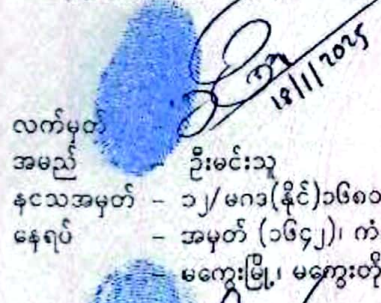 18/1/2025
လက်မှတ်
အမည် ဦးမင်းသူ
နငသအမှတ် - ၁၂/မဂဒ(နိုင်)၁၆၈၁
နေရပ် - အမှတ် (၁၆၄၂)၊ ကံ
မကွေးမြို့၊ မကွေးတို